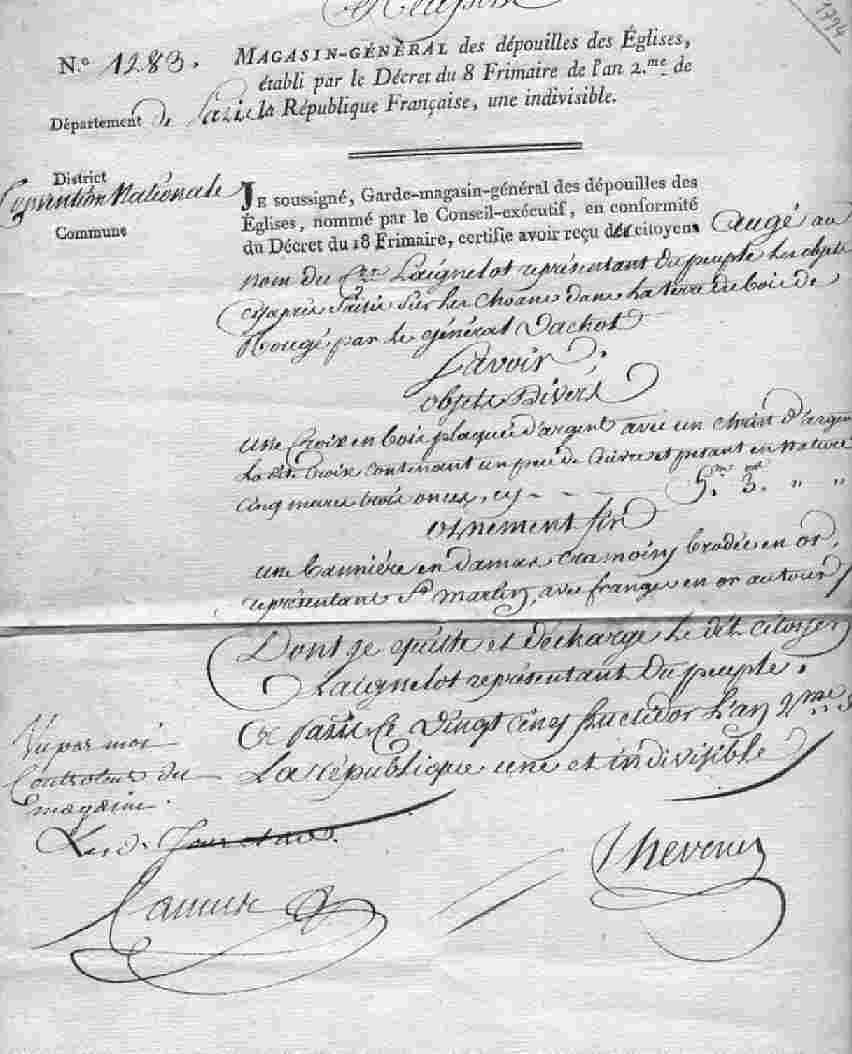 1794
N.º 1283.
MAGASIN-GÉNÉRAL des dépouilles des Églises,
établi par le Décret du 8 Frimaire de l'an 2.me de
la République Française, une indivisible.
Département de Paris
District
Convention Nationale
Commune
JE soussigné, Garde-magasin-général des dépouilles des
Églises, nommé par le Conseil-exécutif, en conformité
du Décret du 18 Frimaire, certifie avoir reçu des citoyens Augé au
nom du Cen Laignelot représentant du peuple les objets
cy après saisis sur les Chouans dans la terre du bois de
Rougé par le général Vachot
Savoir :
objets Divers
une Croix en bois plaquée d'argent avec un christ d'argent
la dite Croix contenant un peu de Cuivre et pesant en nature
cinq marcs trois onces, cy - - - 5.m 3.on " "
ornement fin
une bannière en damas cramoisy brodée en or,
représentant St Martin, avec franges en or autour
Dont je quitte et décharge le dit citoyen
Laignelot représentant du peuple.
Ce paris Ce Vingt cinq fructidor L'an 2me de
La république une et indivisible
Vu par moi
Controleur du
magasin.
Thevenin